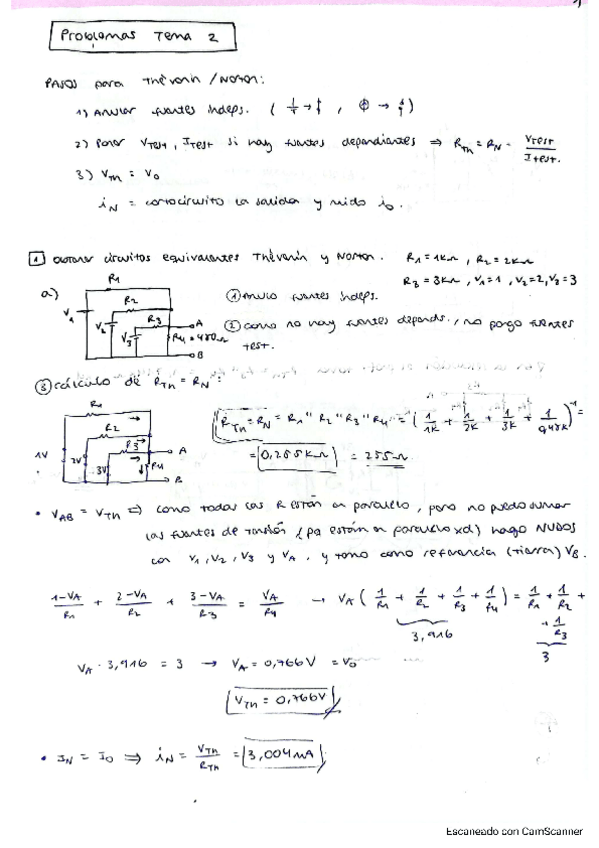 Problemas Tema 2
PASOS para Thévenin/Norton:
1) Anular fuentes indeps.
2) Poner VTest, ITest si hay fuentes dependientes ⇒ RTh = RN = VTest / ITest.
3) VTh = V0
iN = cortocircuito la salida y mido i0.
1 Obtener circuitos equivalentes Thévenin y Norton. R1 = 1KΩ, R2 = 2KΩ
R3 = 3KΩ, V1 = 1, V2 = 2, V3 = 3
a)
R1
R2
R3
V1
V2
V3
A
B
① Anulo fuentes indeps.
② Como no hay fuentes depends., no pongo fuentes
test.
③ Cálculo de RTh = RN:
R1
R2
R3
R4
A
1V
2V
3V
RTh = RN = R1 '' R2 '' R3 '' R4 = (1/1K + 1/2K + 1/3K + 1/0,48K)^-1 =
= 0,255KΩ = 255Ω
• VAB = VTh ⇒ como todas las R están en paralelo, pero no puedo sumar
las fuentes de tensión (pq están en paralelo xd) hago NUDOS
con V1, V2, V3 y VA, y tomo como referencia (tierra) VB.
1-VA/R1 + 2-VA/R2 + 3-VA/R3 = VA/R4 → VA (1/R1 + 1/R2 + 1/R3 + 1/R4) = 1/R1 + 1/R2 + 1/R3
3,916
3
VA · 3,916 = 3 → VA = 0,766V = V0
VTh = 0,766V
• IN = I0 ⇒ iN = VTh / RTh = 3,004mA
Escaneado con CamScanner